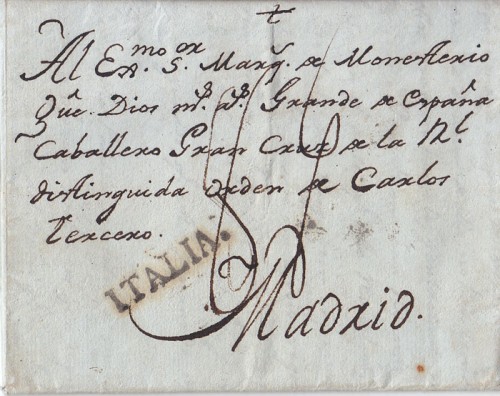 Al Exmo. Sor. Marqs. de Monesterio
Qûe Dios ms. as. Grande de España
Caballero Gran Cruz de la Rl.
distinguida orden de Carlos
tercero.
ITALIA.
Madrid.